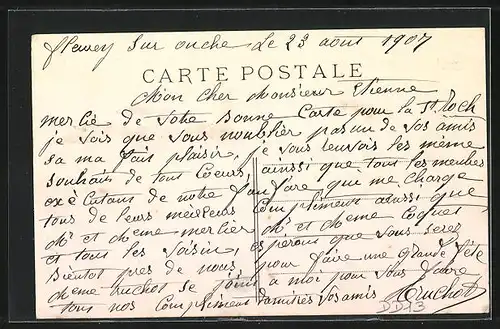 fleurey sur ouche Le 23 aout 1907
CARTE POSTALE
Mon Cher Monsieur Etienne
mercie de votre Bonne Carte pour la St Roch
je vois que vous noublier pas un de vos amis
sa ma fait plaisir, je vous renvois les même
souhais de tout Coeur, ainsi que tout les membres
exécutans de notre fanfare, qui me charge
tous de leurs meilleurs Compliments ainsi que
Mr et meme mercier Mr et meme Coquet
et tous les voisin, esperons que vous serez
Bientot pres de nous pour faire une Grande fête
meme truchot se joint a moi pour vous faire
tous nos Compliment damitiés vos amis Truchot
DD13